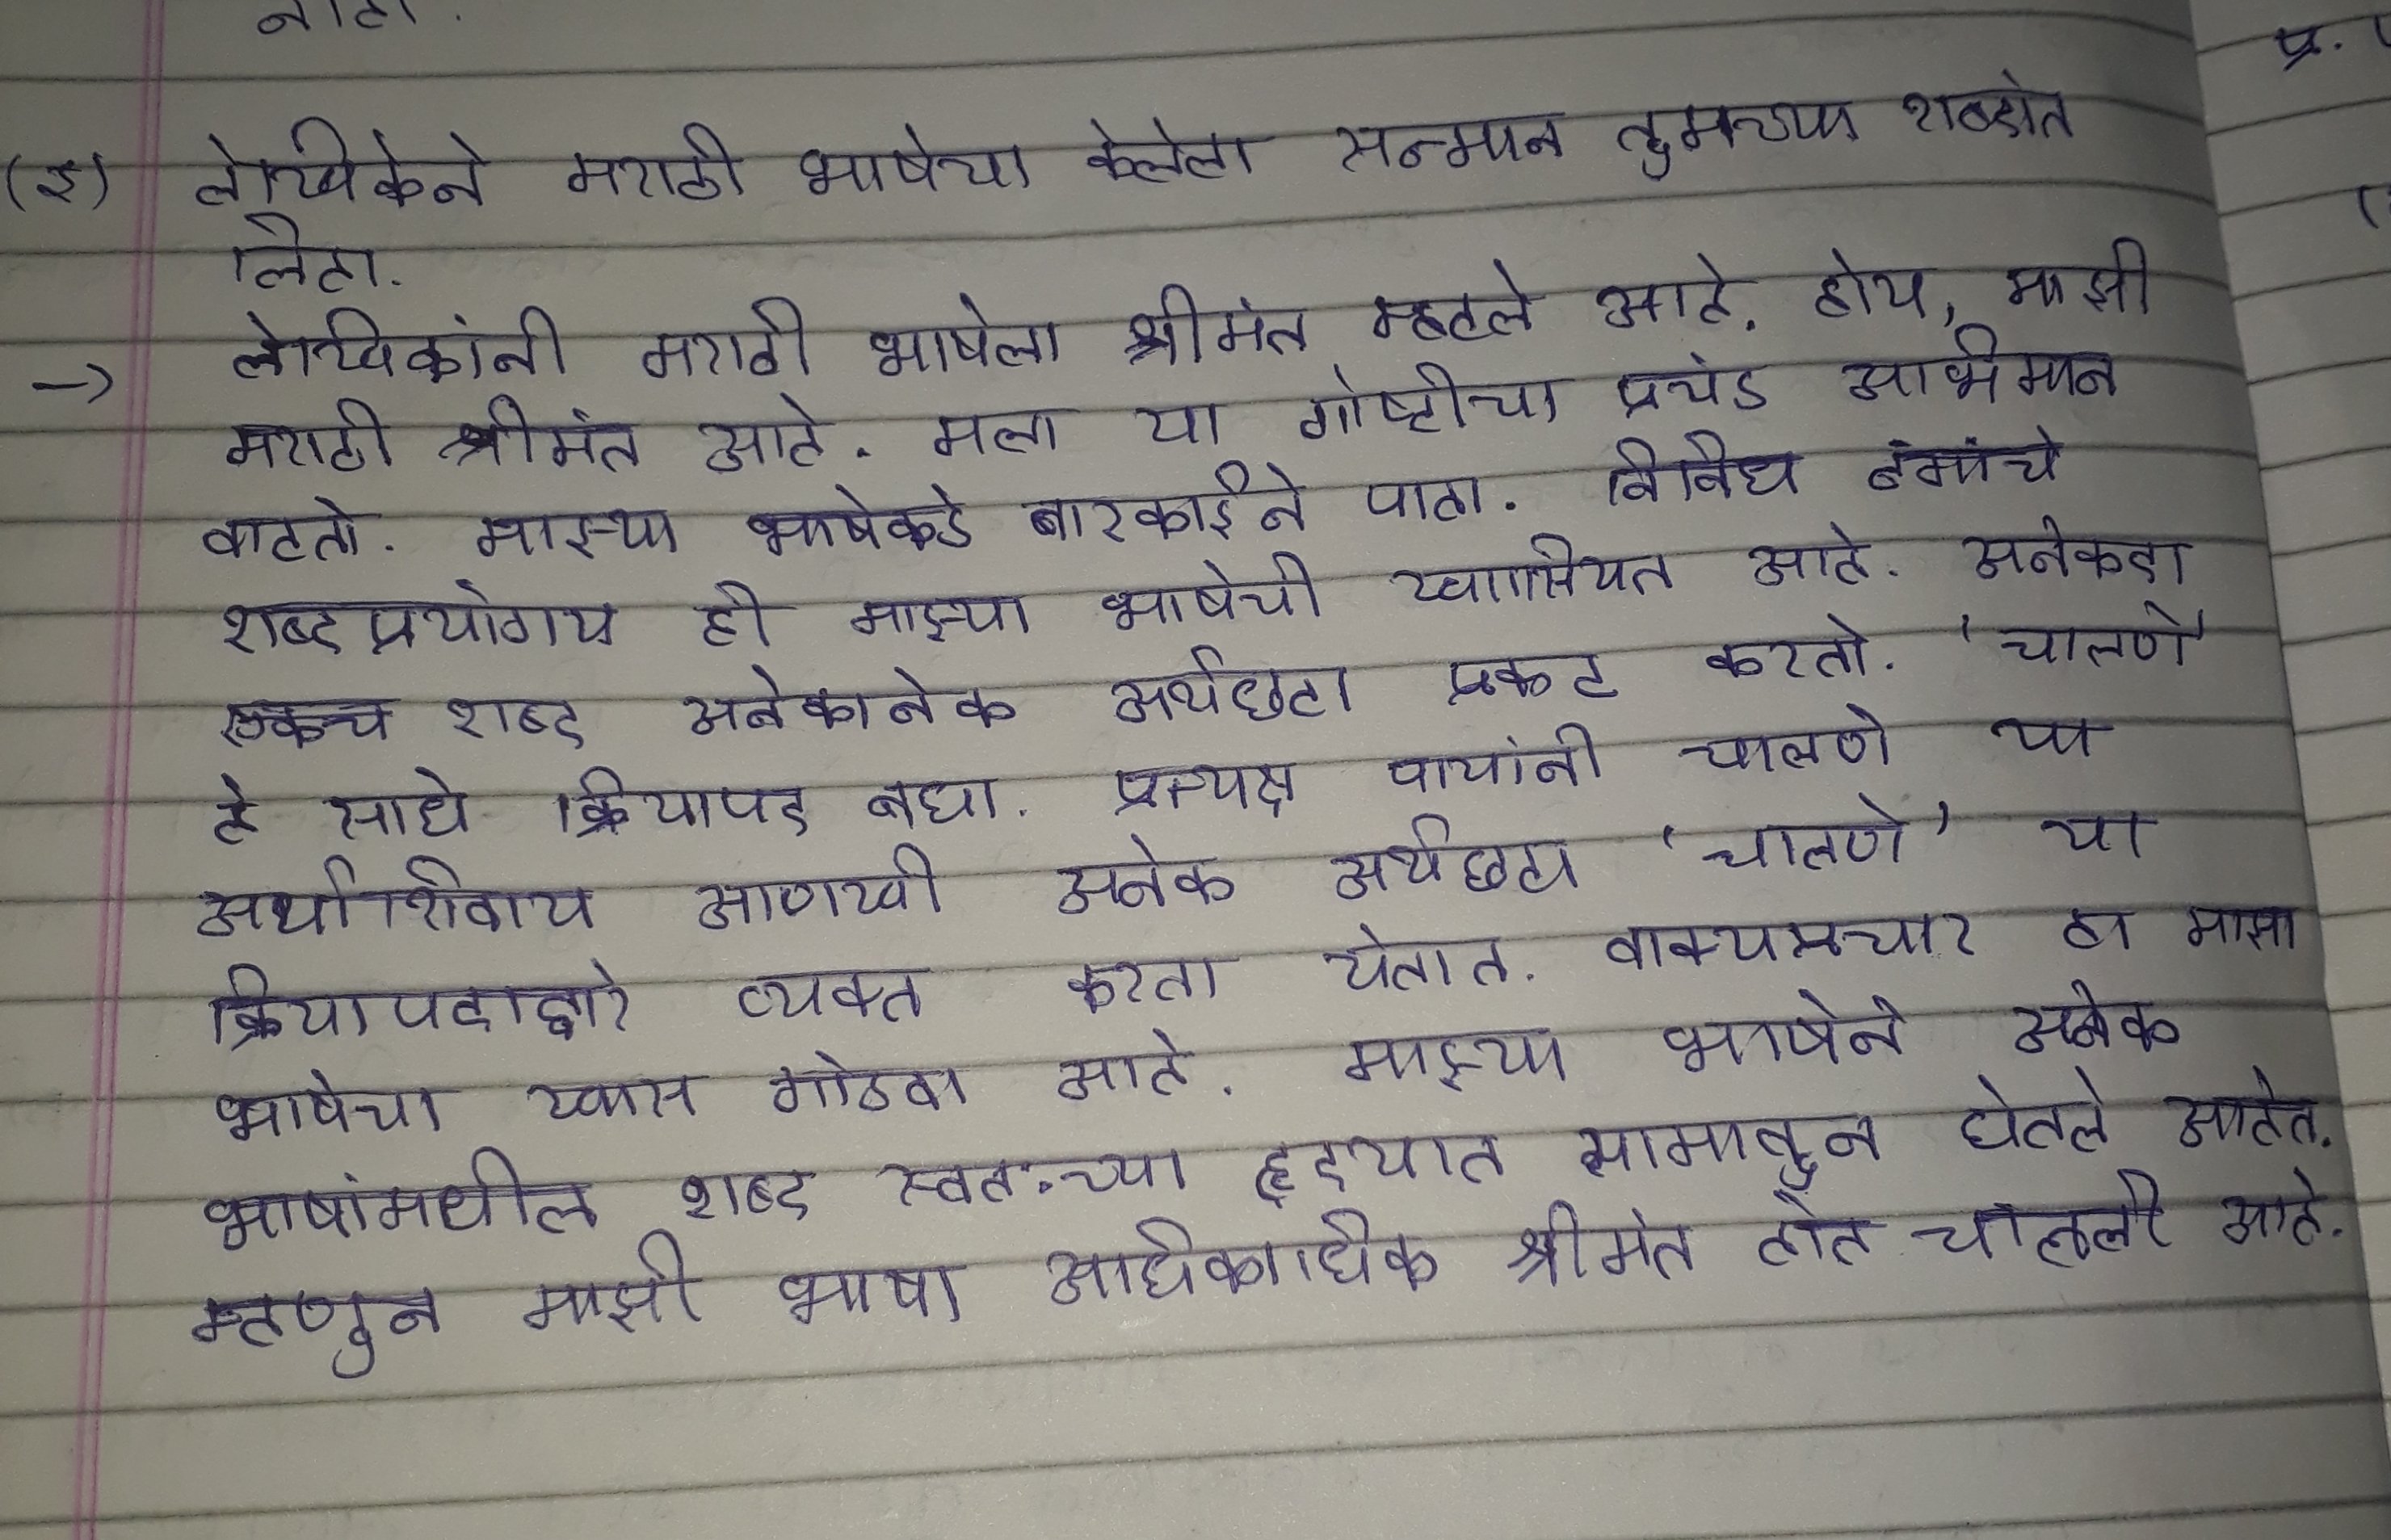 (इ) लेखिकेने मराठी भाषेचा केलेला सन्मान तुमच्या शब्दांत
लिहा.
→ लेखिकांनी मराठी भाषेला श्रीमंत म्हटले आहे. होय, माझी
मराठी श्रीमंत आहे. मला या गोष्टीचा प्रचंड अभिमान
वाटतो. माझ्या भाषेकडे बारकाईने पाहा. विविध ढंगांचे
शब्दप्रयोगय ही माझ्या भाषेची खासियत आहे. अनेकदा
एकच शब्द अनेकानेक अर्थछटा प्रकट करतो. 'चालणे'
हे साधे क्रियापद बघा. प्रत्यक्ष पायांनी चालणे या
अर्थाशिवाय आणखी अनेक अर्थछटा 'चालणे' या
क्रियापदाद्वारे व्यक्त करता येतात. वाक्यप्रचार हा माझा
भाषेचा खास गोडवा आहे. माझ्या भाषेने अनेक
भाषांमधील शब्द स्वतःच्या हृदयात सामावून घेतले आहेत.
म्हणून माझी भाषा अधिकाधिक श्रीमंत होत चालली आहे.
प्र.